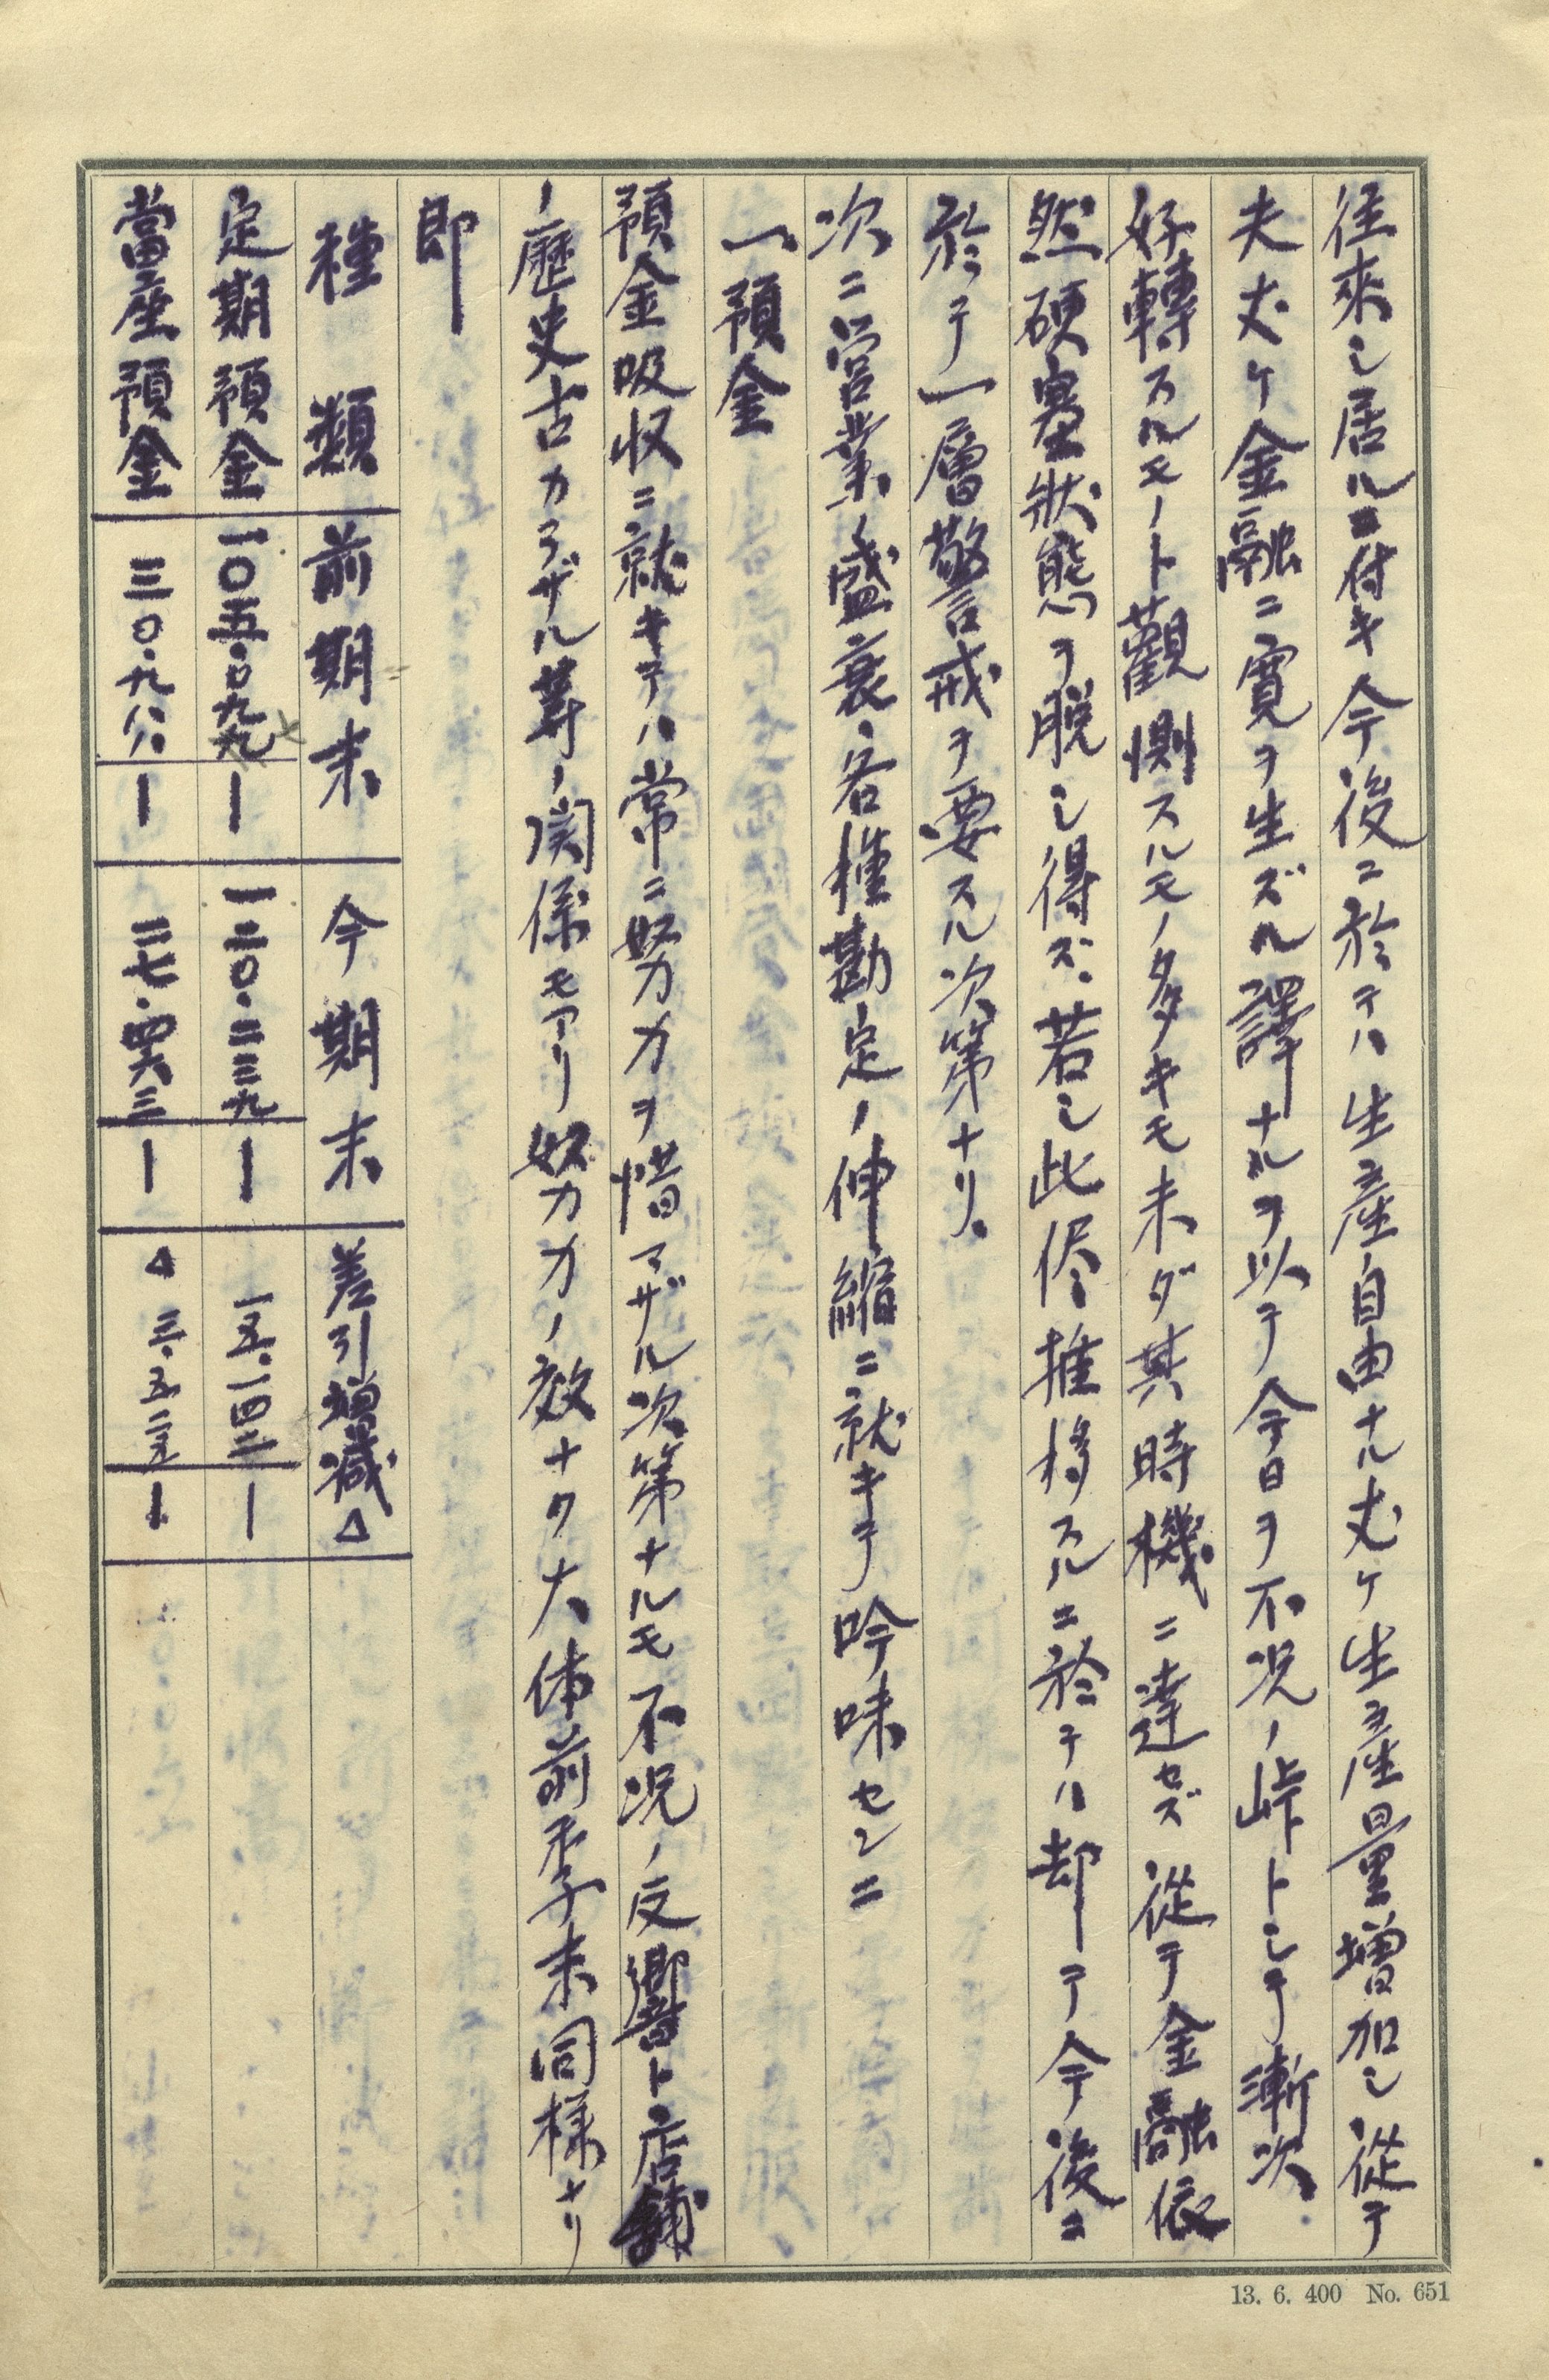 往來シ居ルニ付キ今後ニ於テハ生產自由ナル丈ケ生產量增加シ從テ
夫丈ケ金融ニ寬ヲ生ズル譯ナルヲ以テ今日ヲ不況ノ峠トシテ漸次
好轉スルモノト觀測スルモノ多キモ未ダ其時機ニ達セズ從テ金融依
然硬塞狀態ヲ脱シ得ズ、若シ此侭推移スルニ於テハ却テ今後ニ
於テ一層警戒ヲ要スル次第ナリ。
次ニ営業ノ盛衰、各種勘定ノ伸縮ニ就キテ吟味センニ
一預金
預金吸収ニ就キテハ常ニ努力ヲ惜マザル次第ナルモ不況ノ反響ト店舗
ノ歷史古カラザル等ノ関係モアリ努力ノ效ナク大体前季末同様ナリ
即
種類 前期末 今期末 差引增減△
定期預金 一〇五.〇九七 一二〇.二三九 一五.一四二
當座預金 三〇.九八八 二七.四六三 △三.五二五
13. 6. 400 No. 651